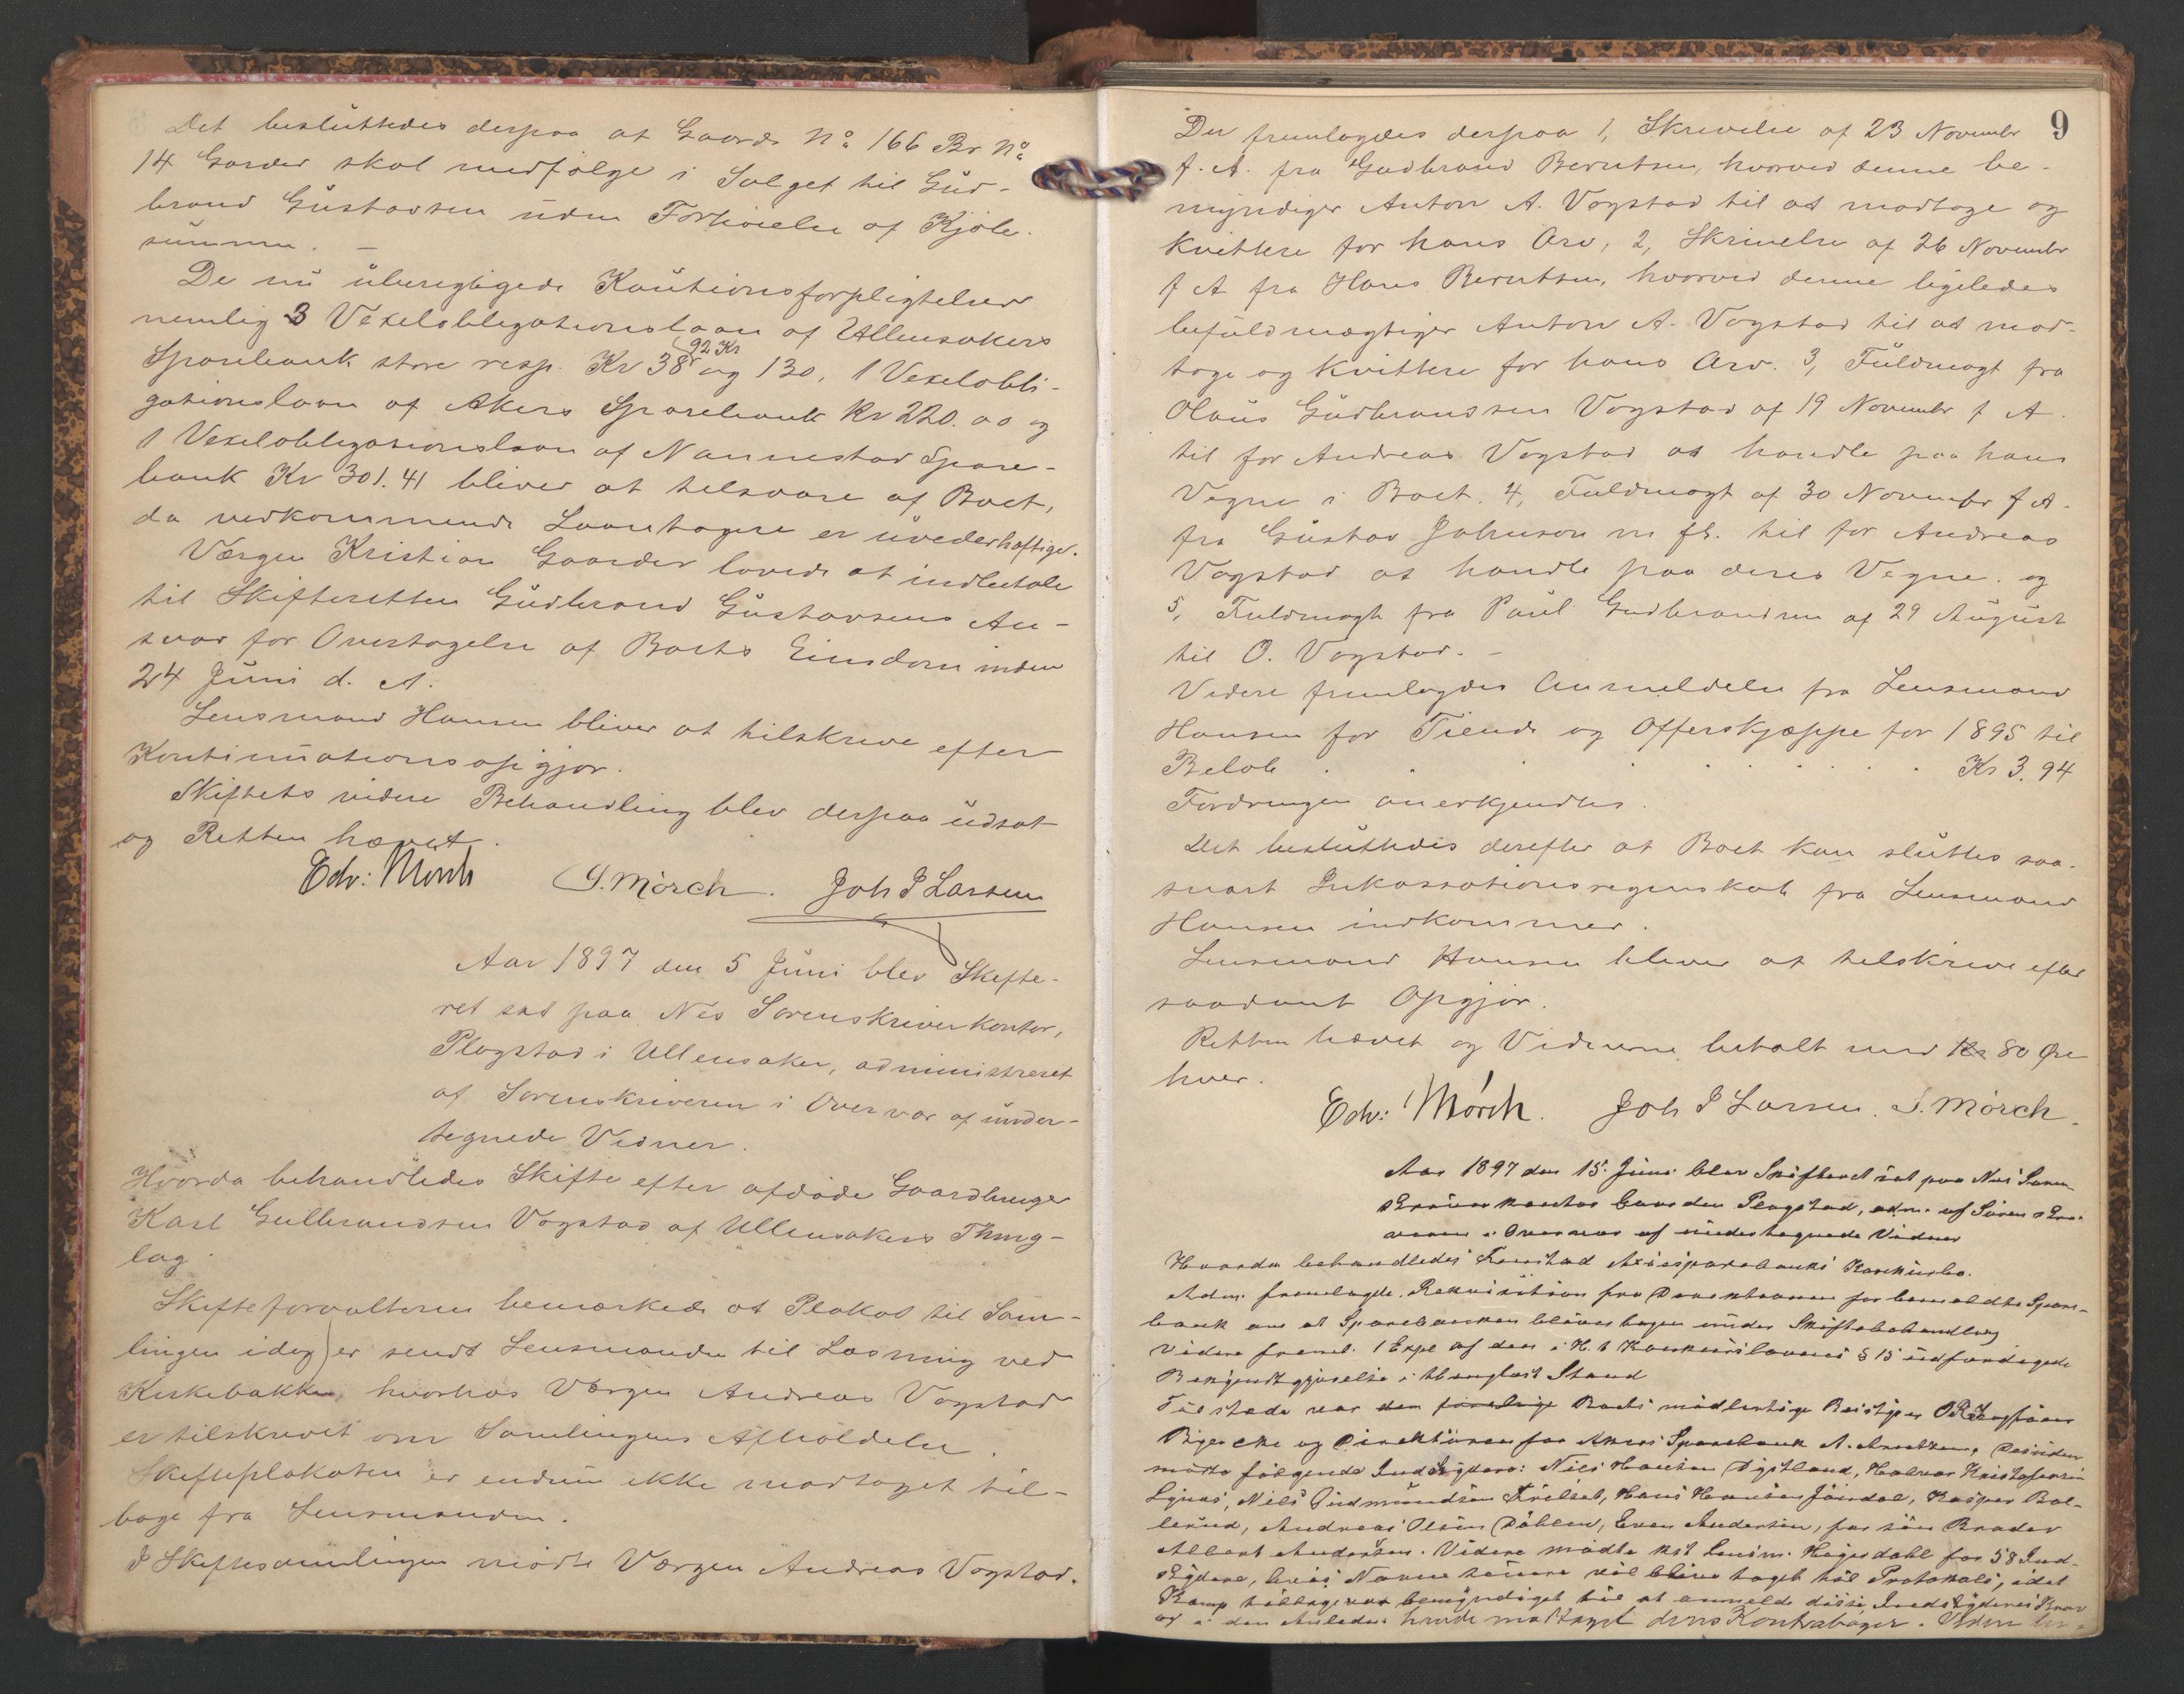 Det besluttedes derpaa at Gaards No 166 Br No
14 Garder skal medfølge i Salget til Gud-
brand Gustavsen uden Forhøielse af Kjøbe-
summen. —
De nu uberigtigede Kautionsforpligtelser
nemlig 3 Vexelobligationslaan af Ullensakers
Sparebank store resp. Kr 38, 92 Kr og 130, 1 Vexelobli-
gationslaan af Akers Sparebank Kr 220.00 og
1 Vexelobligationslaan af Nannestad Spare-
bank Kr 301.41 bliver at tilsvare af Boet,
da vedkommende Laantagere er uvederhæftige.
Værgen Kristian Gaarder lovede at indbetale
til Skifteretten Gudbrand Gustavsens An-
svar for Overtagelse af Boets Eiendom inden
24 Juni d. A.
Lensmand Hansen bliver at tilskrive efter
Kontinuationsopgjør.
Skiftets videre Behandling blev derpaa udsat
og Retten hævet.
Edv: Mørch G. Mørch. Joh P Larsen
Aar 1897 den 5 Juni blev Skifte-
ret sat paa Nes Sorenskriverkontor,
Plogstad i Ullensaker, administreret
af Sorenskriveren i Overvær af under-
tegnede Vidner.
Hvorda behandledes Skifte efter afdøde Gaardbruger
Karl Gulbrandsen Vogstad af Ullensakers Thing-
lag.
Skifteforvalteren bemærkede at Plakat til Sam-
lingen idag er sendt Lensmanden til Læsning ved
Kirkebakken, hvorhos Værgen Andreas Vogstad
er tilskrevet om Samlingens Afholdelse.
Skifteplakaten er endnu ikke modtaget til-
bage fra Lensmanden.
I Skiftesamlingen mødte Værgen Andreas Vogstad.
9
Der fremlagdes derpaa 1, Skrivelse af 23 Novembr
f. A. fra Gudbrand Berntsen, hvorved denne be-
myndiger Anton A. Vogstad til at modtage og
kvittere for hans Arv, 2, Skrivelse af 26 Novembr
f A fra Hans Berntsen, hvorved denne ligeledes
befuldmægtiger Anton A. Vogstad til at mod-
tage og kvittere for hans Arv. 3, Fuldmagt fra
Olaus Gudbrandsen Vogstad af 19 Novembr f A.
til for Andreas Vogstad at handle paa hans
Vegne i Boet. 4, Fuldmagt af 30 Novembr f A.
fra Gustav Johnson m fl. til for Andreas
Vogstad at handle paa deres Vegne. og
5, Fuldmagt fra Paul Gudbrandsen af 29 August
til O. Vogstad. —
Videre fremlagdes Anmeldelse fra Lensmand
Hansen for Tiende og Offerskjæppe for 1895 til
Beløb . . . . . . . . Kr 3.94
Fordringen anerkjendtes.
Det besluttedes derefter at Boet kan sluttes saa-
snart Inkassationsregnskab fra Lensmand
Hansen indkommer.
Lensmand Hansen bliver at tilskrive efter
saadant Opgjør.
Retten hævet og Vidnerne betalt med Kr 80 Øre
hver.
Edv: Mørch. Joh P Larsen. G. Mørch.
Aar 1897 den 15. Juni blev Skifteret sat paa Nes Soren-
skriverkontor Gaarden Plogstad, adm. af Sorenskri-
veren i Overvær af undertegnede Vidner
Hvorda behandledes Sparebanks Konkursbo.
Adm. fremlagde Rekvisition fra Direktionen for bemeldte Spare-
bank om at Sparebanken bliver tagen under Skiftebehandling
Videre freml. 1 Expl af den i H. t Konkurslovens § 15 udfærdigede
Bekjendtgjørelse i thinglæst Stand
Tilstede var den Boets midlertidige Bestyrer
og Direktøren for Akers Sparebank A. , Desuden
mødte følgende Indskydere: Nils Hansen , Halvor Kristofersen
, Nils Gudmundsen , Hans Hansen , Kasper Bøl-
lerud, Andreas Olsen Døhlen, Even Andersen, for sin Broder
Albert Andersen. Videre mødte kst Lensm. for 58 Ind-
skydere, hvis Navne senere vil blive taget til Protokols, idet
Komp tillige var bemyndiget til at anmelde disse Indskyderes Krav
og i den Anledn. havde modtaget deres Kontrabøger.